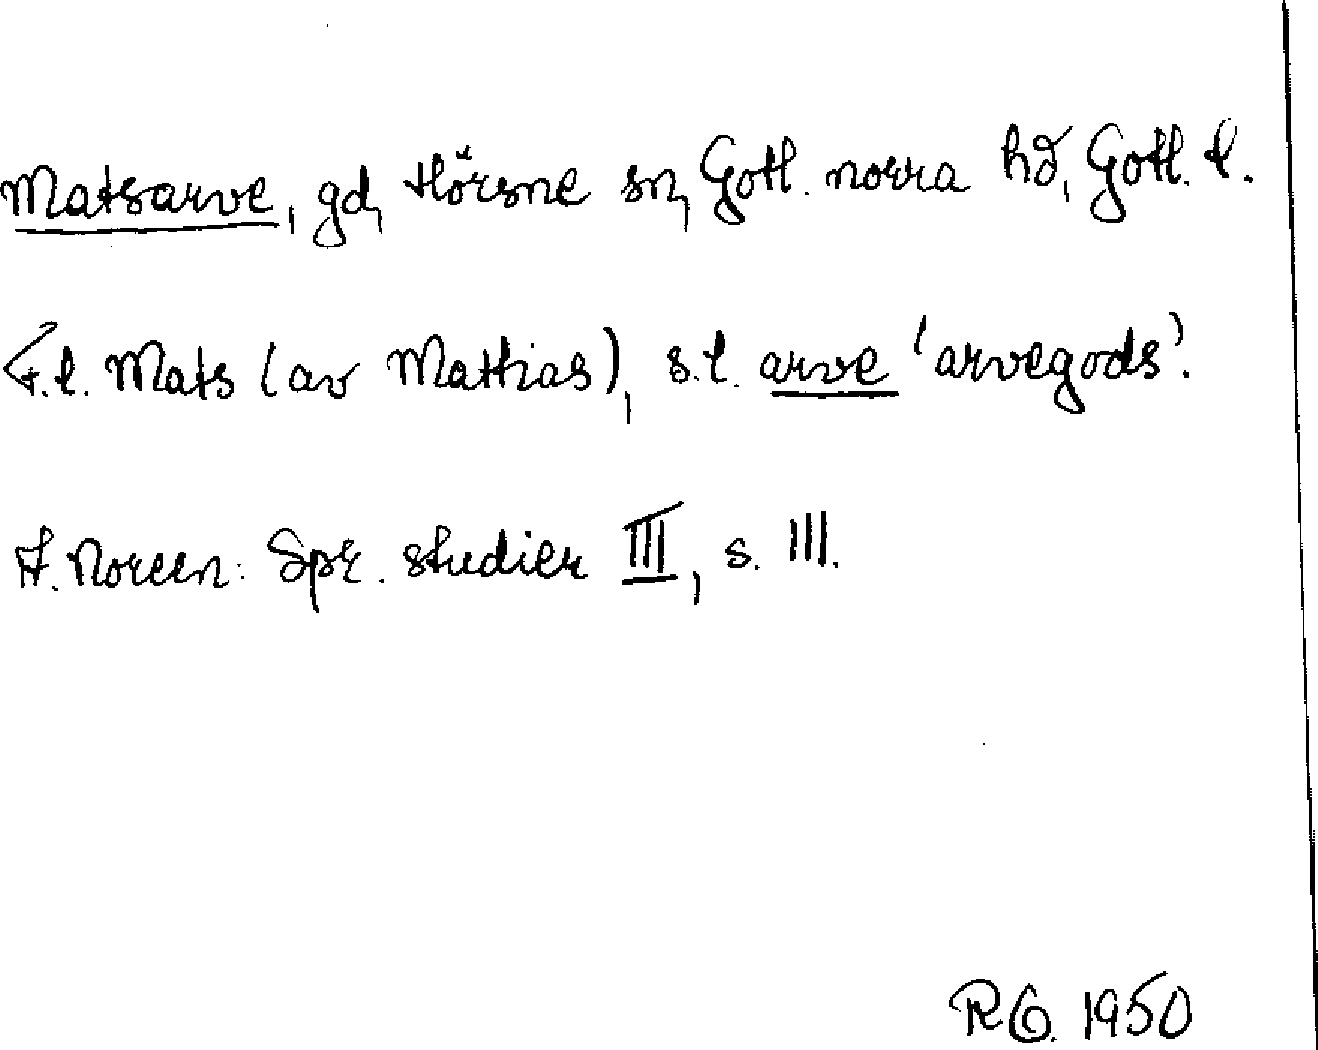 Matsarve, gd, Hörsne sn, Gotl. norra hd, Gotl. l.
F.l. Mats (av Mathias), s.l. arve 'arvegods'.
A. Noreen: Spr. studier III, s. 111.
RG. 1950